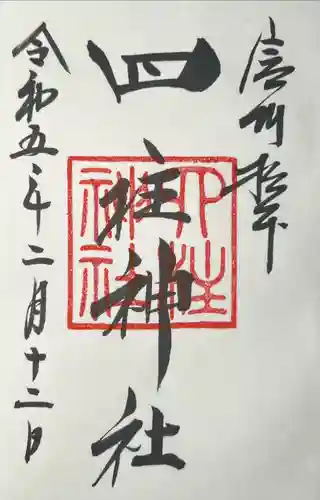 信州松本
四柱神社
令和五年二月十二日
四柱神社